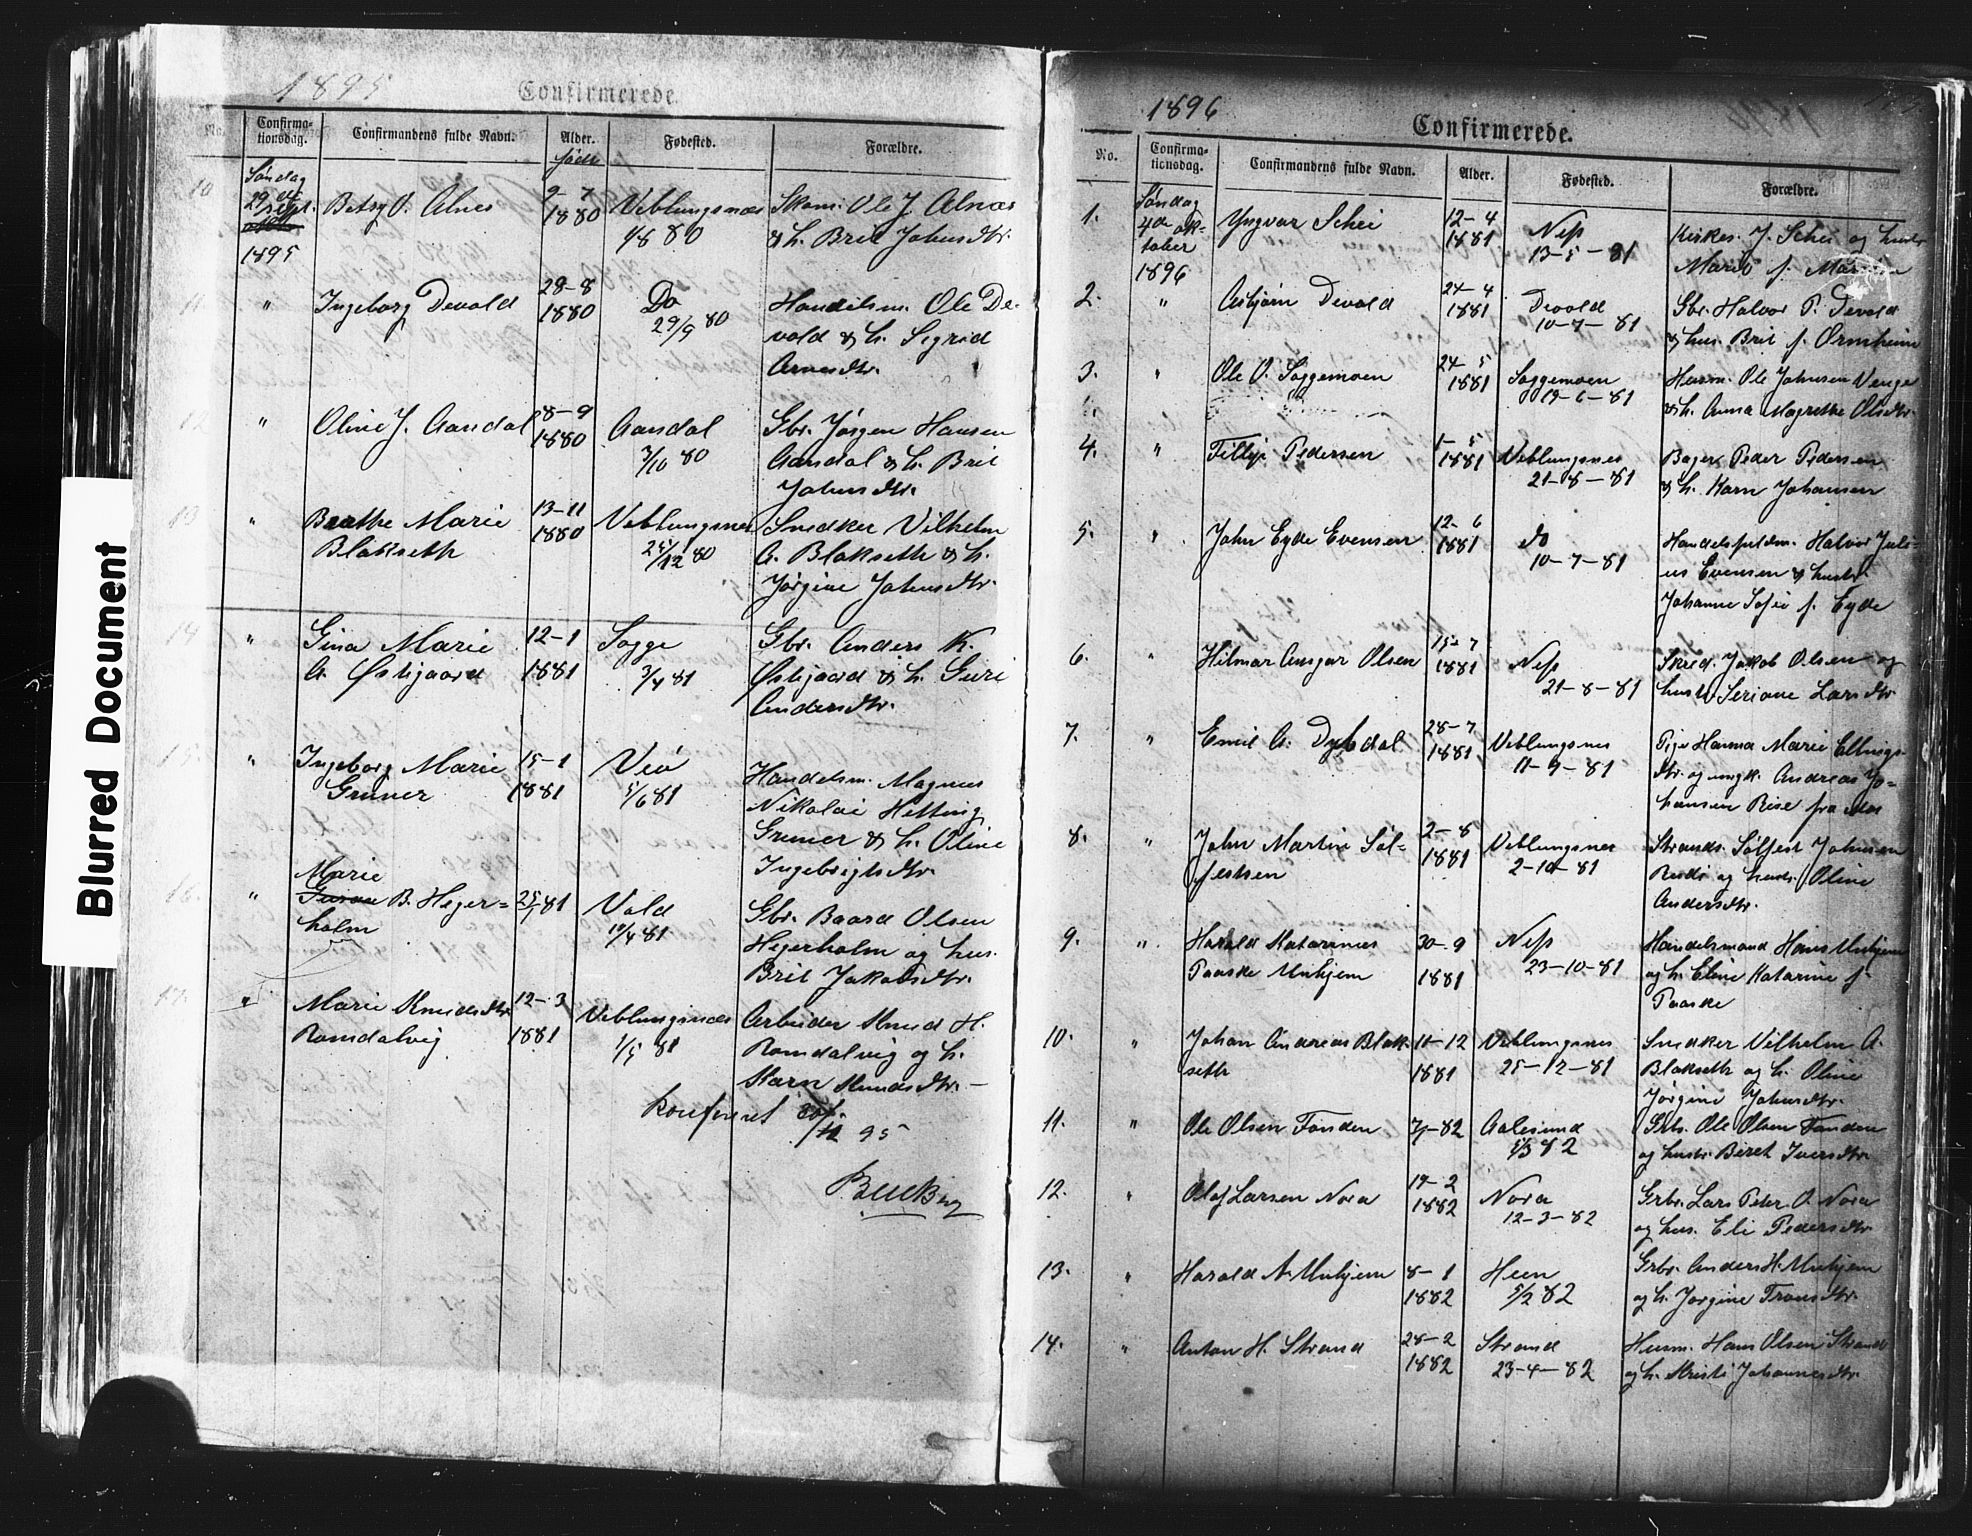 Blurred Document
1895
Confirmerede.
No.
Confirma-
tionsdag.
Confirmandens fulde Navn.
Alder.
født
Fødested.
Forældre.
10
Søndag
29de
Sept.
1895
Betsy O. Alnes
9-7
1880
Veblungsnæs
1/8 80
Skom. Ole J. Alnæs
& h. Brit Johnsdtr.
11
"
Ingeborg Devold
28-8
1880
Do
29/9 80
Handelsm. Ole De-
vold & h. Sigrid
Arnesdtr.
12
"
Oline J. Aandal
8-9
1880
Aandal
3/10 80
Gbr. Jørgen Hansen
Aandal & h. Brit
Johnsdtr.
13
"
Berthe Marie
Blakseth
13-11
1880
Veblungsnes
25/12 80
Snedker Vilhelm
A. Blakseth & h.
Jørgine Johnsdtr.
14
"
Gina Marie
A. Østigaard
12-1
1881
Sogge
3/4 81
Gbr. Anders K.
Østigaard & h. Guri
Andersdtr.
15
"
Ingeborg Marie
Grüner
15-1
1881
Veø
5/6 81
Handelsm. Magnus
Nikolai Hetting
Grüner & h. Oline
Ingebrigtsdtr.
16
"
Marie
B. Hejer-
holm
25/1 81
Vold
10/4 81
Gbr. Baard Olsen
Hejerholm og hus.
Brit Jakobsdtr.
17.
"
Marie Knudsdtr.
Romdalvig
12-3
1881
Veblungsnæs
1/5 81
Arbeider Knud H.
Romdalvig og h.
Karn Knudsdtr. -
Konfereret
/12 95
1896
Confirmerede.
No.
Confirma-
tionsdag.
Confirmandens fulde Navn.
Alder.
Fødested.
Forældre.
1.
Søndag
4de ok-
tober
1896
Yngvar Schei
12-4
1881
Nes
13-5-81
Kirkes. J. Schei og hustr.
Marit f.
2.
"
Asbjørn Devold
24-4
1881
Devold
10-7-81
Gbr. Halvor P. Devold
& hus. Brit f. Ormheim
3.
"
Ole O. Soggemoen
24-5
1881
Soggemoen
19-6-81
Husm. Ole Johnsen Venge
& h. Anna Magrethe Olsdtr.
4.
"
Fillip Pedersen
1-5
1881
Veblungsnes
21-8-81
Bager Peder Pedersen
& h. Karn Johansen
5.
"
John Eyde Evensen
12-6
1881
do
10-7-81
Handelsfuldm. Halvor Juli-
us Evensen & hustr.
Johanne Sofie f. Eyde
6.
"
Hilmar Ansgar Olsen
15-7
1881
Nes
21-8-81
Skred. Jakob Olsen og
hustr. Seriane Larsdtr.
7.
"
Emil A. Dybdal
28-7
1881
Veblungsnes
11-9-81
Pige Hanna Marie Ellings-
dtr. og ungk. Andreas Jo-
hansen Rise fra
8.
"
John Martin Søl-
festsen
2-8
1881
Veblungsnes
2-10-81
Strands. Sølfest Johnsen
og hustr. Oline
Andersdtr.
9.
"
Harald Katarinus
Paaske Unhjem
30-9
1881
Nes
23-10-81
Handelsmand Hans Unhjem
og h. Eline Katarine f.
Paaske
10.
"
Johan Andreas Blak-
seth
11-12
1881
Veblungsnes
25-12-81
Snedker Vilhelm A.
Blakseth og h. Oline
Jørgine Johnsdtr.
11.
"
Ole Olsen Tonden
7/1-82
Aalesund
5/3 82
Grbr. Ole Olsen Tonden
og hustr. Beret Iversdtr.
12.
"
Olaf Larsen Nora
19-2
1882
Nora
12-3-82
Grbr. Lars Peter O. Nora
og hus. Eli Pedersdtr.
13.
"
Harald A. Unhjem
8-1
1882
Heen
5/2 82
Grbr. Anders H. Unhjem
og h. Jørgine Tronsdtr.
14.
"
Anton H. Strand
28-2
1882
Strand
23-4-82
Husm. Hans Olsen Strand
og h. Kristi Johannesdtr.